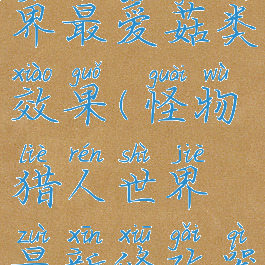 界最爱菇类
xiào guǒ guài wù
效果(怪物
liè rén shì jiè
猎人世界
zuì xīn xiū gǎi qì
最新修改器